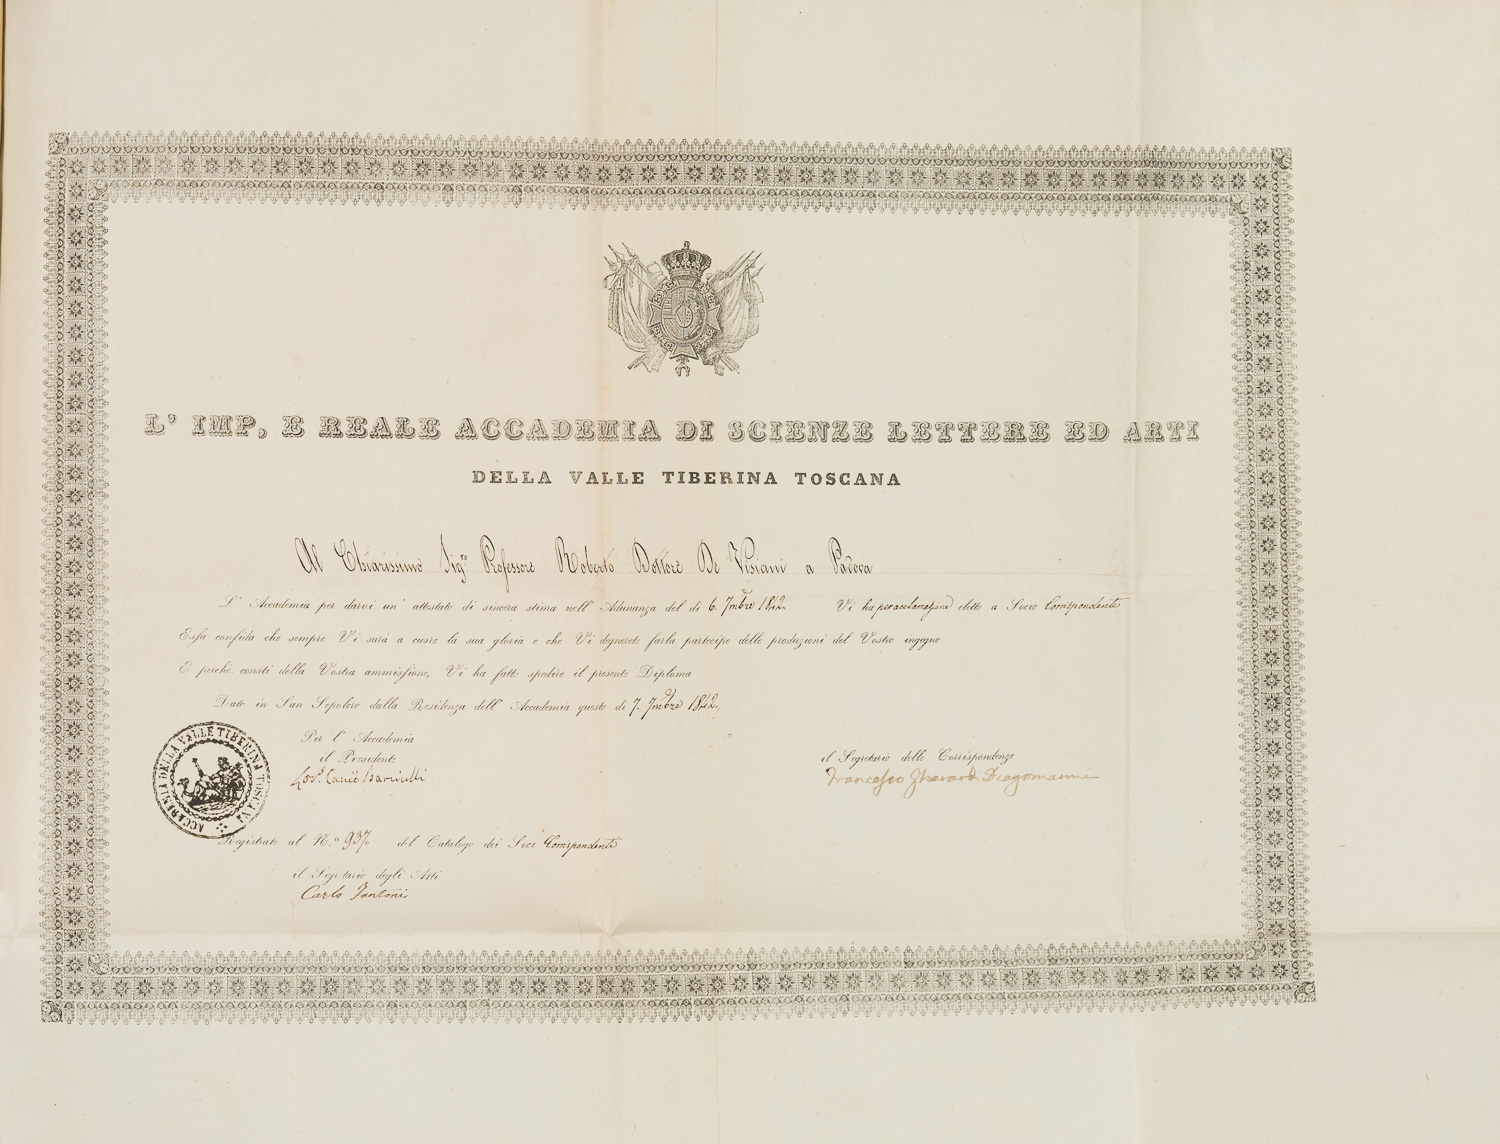 L' IMP, E REALE ACCADEMIA DI SCIENZE LETTERE ED ARTI
DELLA VALLE TIBERINA TOSCANA
Al Chiarissimo Sigre Professore Roberto Dottore De Visiani a Padova
L' Accademia per darvi un' attestato di sincera stima nell' Adunanza del dì 6. 7mbre 1842 Vi ha per acclamazione eletto a Socio Corrispondente
Essa confida che sempre Vi sarà a cuore la sua gloria e che Vi degnerete farla partecipe delle produzioni del Vostro ingegno
E perchè consti della Vostra ammissione, Vi ha fatto spedire il presente Diploma
Dato in San Sepolcro dalla Residenza dell' Accademia questo dì 7. 7mbre 1842.
Per l' Accademia
il Presidente
il Segretario delle Corrispondenze
Francesco Gherardi Dragomanni
ACCADEMIA DELLA VALLE TIBERINA TOSCANA
Registrato al N.o 937 del Catalogo dei Soci Corrispondenti
il Segretario degli Atti
Carlo Fantoni